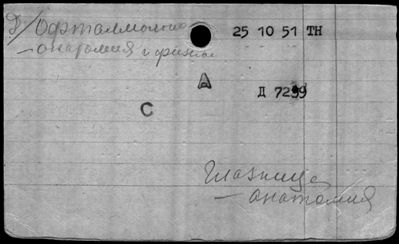 Д/Офтальмология 25 10 51 ТН
— анатомия и физиол
А
Д 7299
С
Глазница
— анатомия